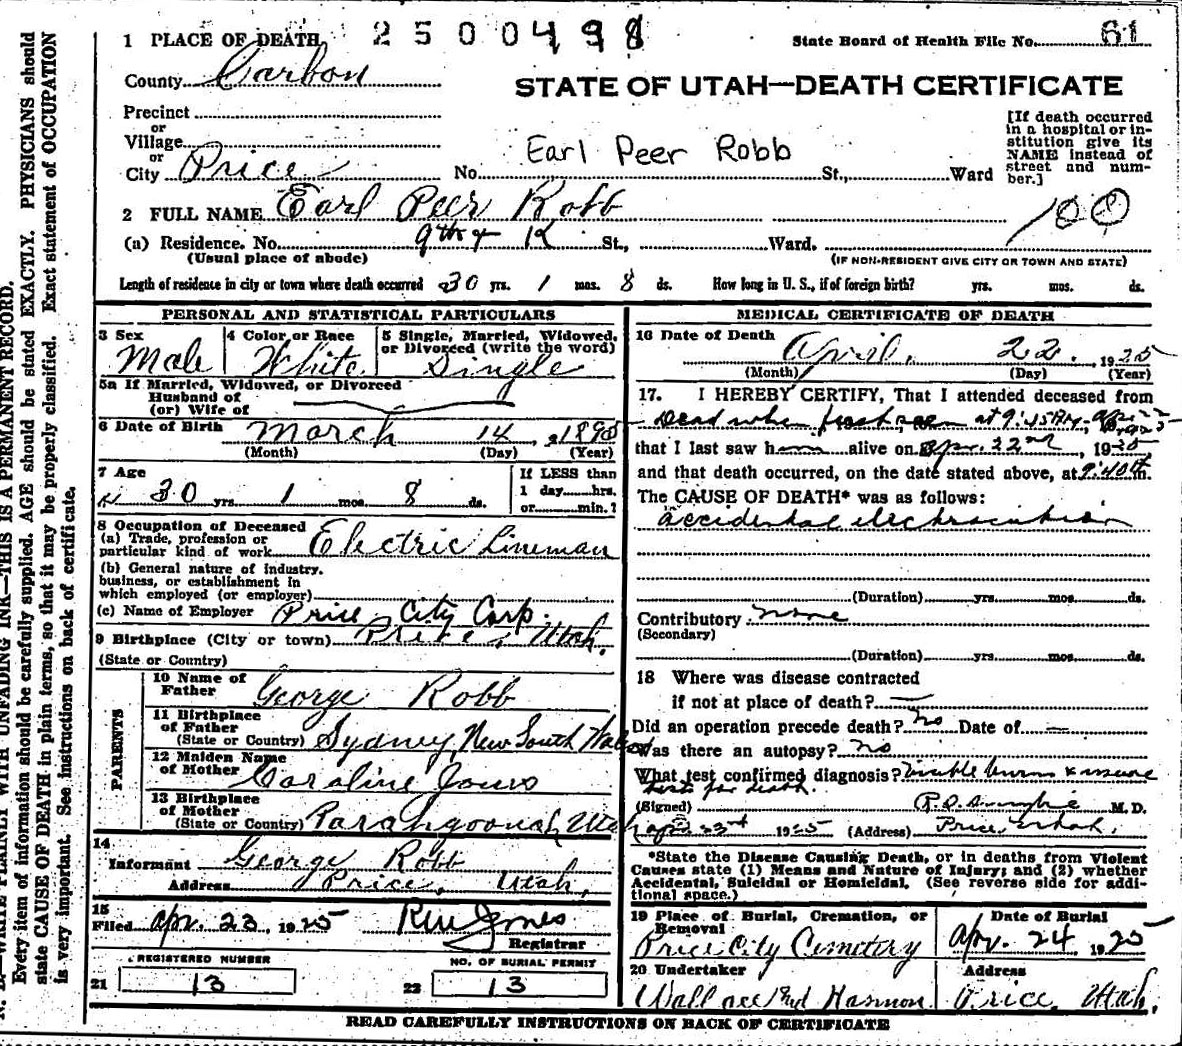 2500498
1 PLACE OF DEATH
State Board of Health File No. 61
County Carbon
STATE OF UTAH—DEATH CERTIFICATE
Precinct
or
Village
or
City Price No. Earl Peer Robb St., Ward
[If death occurred
in a hospital or in-
stitution give its
NAME instead of
street and num-
ber.]
2 FULL NAME Earl Peer Robb
100
(a) Residence. No. 9th & K St., Ward.
(Usual place of abode) (IF NON-RESIDENT GIVE CITY OR TOWN AND STATE)
Length of residence in city or town where death occurred 30 yrs. 1 mos. 8 ds. How long in U. S., if of foreign birth? yrs. mos. ds.
PERSONAL AND STATISTICAL PARTICULARS
3 Sex Male
4 Color or Race White
5 Single, Married, Widowed,
or Divorced (write the word)
Single
5a If Married, Widowed, or Divorced
Husband of
(or) Wife of
6 Date of Birth March 14, 1895
(Month) (Day) (Year)
7 Age
30 yrs. 1 mos. 8 ds.
If LESS than
1 day hrs.
or min.?
8 Occupation of Deceased
(a) Trade, profession or
particular kind of work Electric Lineman
(b) General nature of industry.
business, or establishment in
which employed (or employer)
(c) Name of Employer Price City Corp.
9 Birthplace (City or town) Price, Utah.
(State or Country)
PARENTS
10 Name of
Father George Robb
11 Birthplace
of Father
(State or Country) Sydney, New South Wales
12 Maiden Name
of Mother Caroline Jones
13 Birthplace
of Mother
(State or Country) Parahgoonah, Utah
14
Informant George Robb
Address Price, Utah.
15
Filed Apr. 23, 1925
Registrar
REGISTERED NUMBER
21 13
NO. OF BURIAL PERMIT
22 13
MEDICAL CERTIFICATE OF DEATH
16 Date of Death
April, 22, 1925
(Month) (Day) (Year)
17. I HEREBY CERTIFY, That I attended deceased from
Dead when first seen at 9:45 AM,
that I last saw h alive on Apr. 22nd, 1925
and that death occurred, on the date stated above, at 9:40 m.
The CAUSE OF DEATH* was as follows:
accidental electrocution
(Duration) yrs. mos. ds.
Contributory none
(Secondary)
(Duration) yrs. mos. ds.
18 Where was disease contracted
if not at place of death? —
Did an operation precede death? No Date of —
Was there an autopsy? no
What test confirmed diagnosis? Visible burns &
tests for death.
(Signed) M. D.
Apr 23rd 1925 (Address) Price, Utah.
*State the Disease Causing Death, or in deaths from Violent
Causes state (1) Means and Nature of Injury; and (2) whether
Accidental, Suicidal or Homicidal. (See reverse side for addi-
tional space.)
19 Place of Burial, Cremation, or
Removal
Price City Cemetery
Date of Burial
Apr. 24 1925
20 Undertaker
Wallace Harmon
Address
Price, Utah.
READ CAREFULLY INSTRUCTIONS ON BACK OF CERTIFICATE
WRITE PLAINLY WITH UNFADING INK—THIS IS A PERMANENT RECORD.
Every item of information should be carefully supplied. AGE should be stated EXACTLY. PHYSICIANS should
state CAUSE OF DEATH in plain terms, so that it may be properly classified. Exact statement of OCCUPATION
is very important. See instructions on back of certificate.